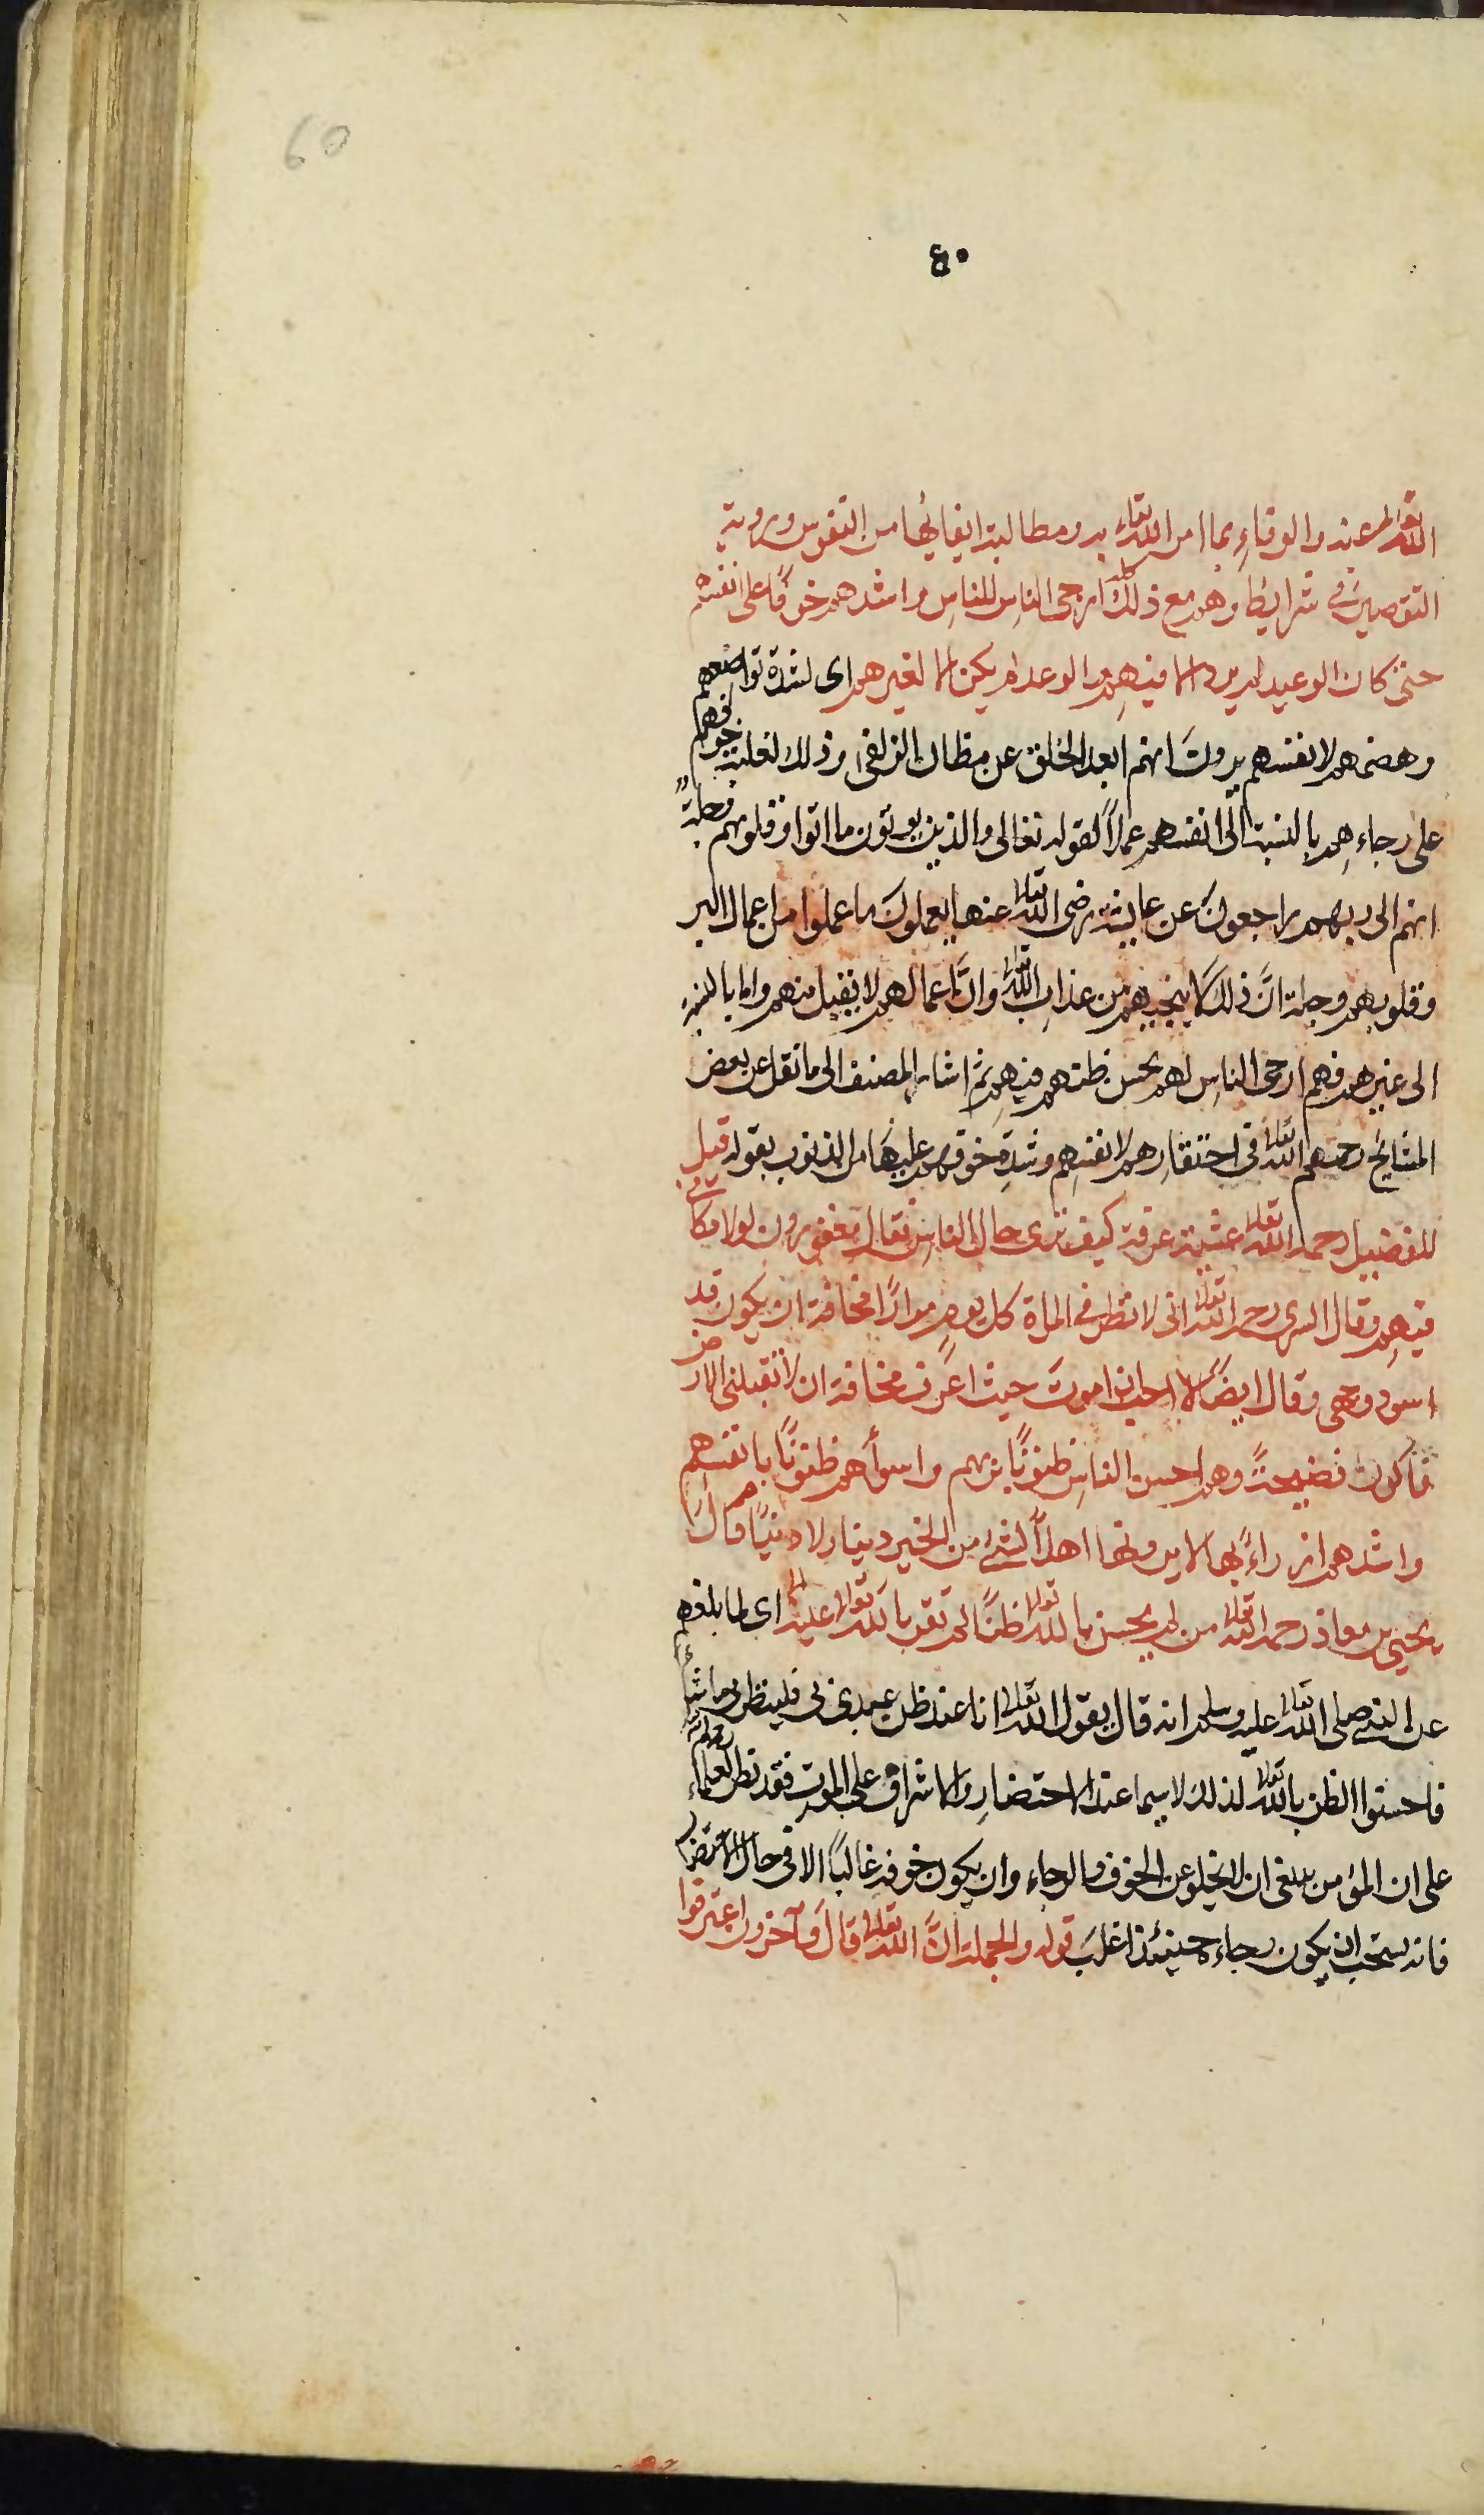 60
٤٠
الله تعالى عنه والوفاء بما امر الله تعالى به ومطالبة ايفائها من النفوس وروية
التقصير في شرايط وهم مع ذلك كله ارجى الناس للناس واشدهم خوفًا على انفسهم
حتى كان الوعيد لم يرد الا فيهم والوعد لم يكن الا لغيرهم اى لشدة تواضعهم
وهضمهم لانفسهم يرون انهم ابعد الخلق عن مظان الزلفى وذلك لغلبة خوفهم
على رجاءهم بالنسبة الى انفسهم عملاً لقوله تعالى والذين يوتون ما اتوا وقلوبهم وجلة
انهم الى ربهم راجعون عن عايشة رضى الله تعالى عنها يعملون ما عملوا من اعمال البر
وقلوبهم وجلة انَّ ذلك لا ينجيهم من عذاب الله تعالى وانَّ اعمالهم لا يقبل منهم واما بالنسبة
الى غيرهم فهم ارجى الناس لهم بحسن ظنهم فيهم ثم اشار المصنف الى ما نقل عن بعض
المشايخ رحمهم الله تعالى في احتقارهم لانفسهم وشدة خوفهم عليها من الذنوب بقوله قيل
للفضيل رحمه الله تعالى عشية عرفة كيف ترى حال الناس فقال مغفورون لولا مكانى
فيهم وقال السرى رحمه الله تعالى انى لانظر في المراة كل يوم مرارًا مخافة ان يكون قد
اسود وجهى وقال ايضًا لا احب ان اموت حيث اعرف مخافة ان لا تقبلنى الارض
فاكون فضيحةً وهم احسن الناس ظنونًا بربهم واسوأهم ظنونًا بانفسهم
واشدهم ازراءً بها لا يرونها اهلاً لشئ من الخير دينا ولا دنيًا قال
يحيى بن معاذ رحمه الله تعالى من لم يحسن بالله تعالى ظنًا لم تقر بالله تعالى عينه اى لما بلغه
عن النبي صلى الله تعالى عليه وسلم انه قال يقول الله تعالى انا عند ظن عبدى بى فليظن بى ما شاء
فاحسنوا الظن بالله تعالى لذلك لا سيما عند الاحتضار والاشراف على الموت فقد نظر العلماء
على ان المؤمن ينبغى ان لا يخلو عن الخوف والرجاء وان يكون خوفه غالبًا الا في حال الاحتضار
فانه يستحب ان يكون رجاءه حينئذ اغلب قوله والجملة انَّ الله تعالى قال وآخرون اعترفوا